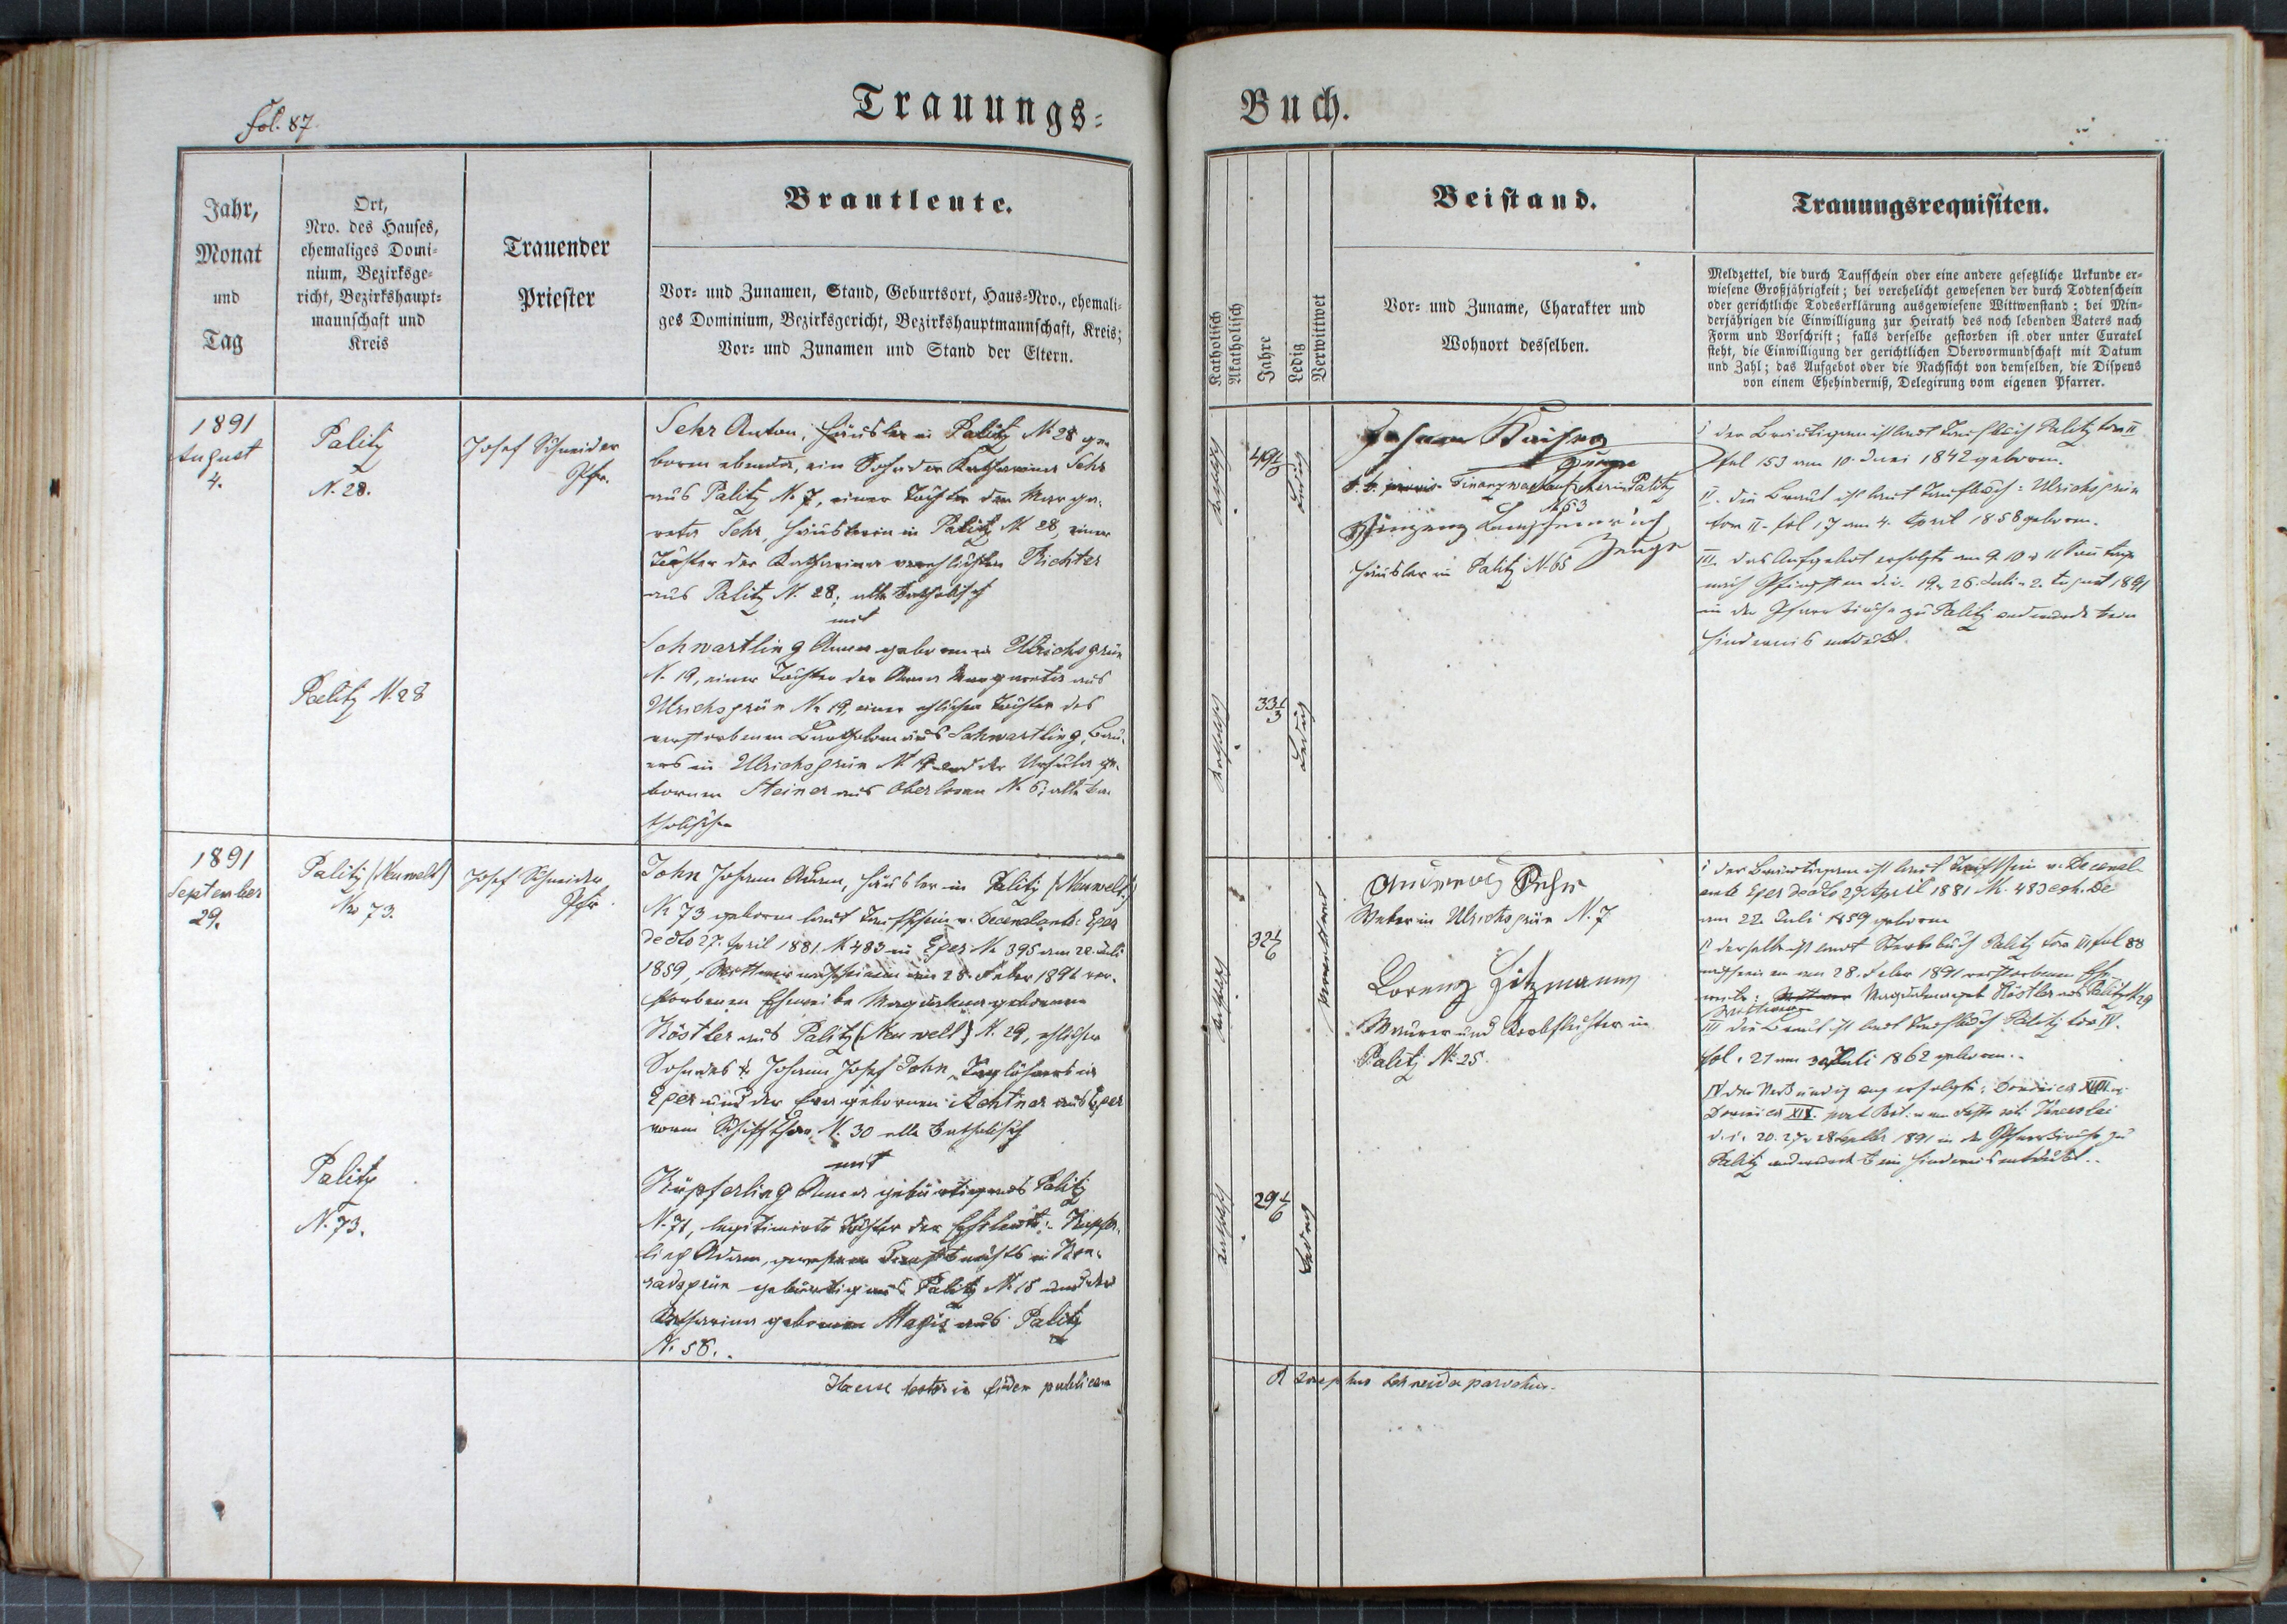 fol. 87.
Trauungs-
Jahr,
Monat
und
Tag
Ort,
Nro. des Hauses,
ehemaliges Domi-
nium, Bezirksge-
richt, Bezirkshaupt-
mannschaft und
Kreis
Trauender
Priester
Brautleute.
Vor- und Zunamen, Stand, Geburtsort, Haus-Nro., ehemali-
ges Dominium, Bezirksgericht, Bezirkshauptmannschaft, Kreis;
Vor- und Zunamen und Stand der Eltern.
1891
August
4.
Palitz
N. 28.
Josef Schneider
Pfr.
Sehr Anton, Häusler in Palitz N. 28 ge-
boren ebenda, ein Sohn der Katharina Sehr
aus Palitz N. 7, einer Tochter der Marga-
reta Sehr, Häuslerin in Palitz N. 28, einer
Tochter der Katharina verehlichten Richter
aus Palitz N. 28; alle katholisch
mit
Schwartling Anna geboren in Ulrichsgrün
N. 19, einer Tochter der Anna Margareta aus
Ulrichsgrün N. 19, einer ehlichen Tochter des
verstorbenen Bartholomäus Schwartling, Bau-
ers in Ulrichsgrün N. und der Ursula ge-
bornen Steiner aus Oberlosau N. 6; alle ka-
tholisch
Palitz N. 28
1891
September
29.
Palitz (Neuwelt)
Nro 73.
Josef Schneider
Pfr.
John Johann Adam, Häusler in Palitz (Neuwelt)
N. 73 geboren laut Taufschein v. Decanalamte Eger
de dto 27. April 1881. N. 483 in Eger N. 395 am 22. Juli
1859, Wittwer nach seinem am 28. Feber 1891 ver-
storbenen Eheweibe Magdalena gebornen
Köstler aus Palitz (Neuwelt) N. 29, ehlicher
Sohn des Johann Josef John, Taglöhners in
Eger und der Eva gebornen Achtner aus Eger
N. 30 alle katholisch
mit
Küpferling Anna gebürtig aus Palitz
N. 71, legitimirte Tochter der Eheleute: Küpfer-
ling Adam, gewesenen Dienstknechts in Kon-
radsgrün gebürtig aus Palitz N. 15 und der
Katharina gebornen aus Palitz
N. 56.
Palitz
N. 73.
Haecce testor in fidem publicam
Buch.
Katholisch
Akatholisch
Jahre
Ledig
Verwittwet
Beistand.
Vor- und Zuname, Charakter und
Wohnort desselben.
Trauungsrequisiten.
Meldzettel, die durch Taufschein oder eine andere gesetzliche Urkunde er-
wiesene Großjährigkeit; bei verehelicht gewesenen der durch Todtenschein
oder gerichtliche Todeserklärung ausgewiesene Wittwenstand; bei Min-
derjährigen die Einwilligung zur Heirath des noch lebenden Vaters nach
Form und Vorschrift; falls derselbe gestorben ist oder unter Curatel
steht, die Einwilligung der gerichtlichen Obervormundschaft mit Datum
und Zahl; das Aufgebot oder die Nachsicht von demselben, die Dispens
von einem Ehehinderniß, Delegirung vom eigenen Pfarrer.
katholisch
ledig
katholisch
33 1/3
ledig
Johann Kaiser
Zeuge
k. k. Finanzwachaufseher in Palitz
N. 63
Zeuge
Häusler in Palitz N. 65
I der Bräutigam ist laut Taufbuch Palitz tom II
fol 153 am 10. Juni 1842 geboren.
II. die Braut ist laut Taufbuch: Ulrichsgrün
tom II. fol 17 am 4. April 1858 geboren.
III. das Aufgebot erfolgte am 9. 10 u 11 Sonntage
nach Pfingsten d. i. 19. 26. Juli u. 2. August 1891
in der Pfarrkirche zu Palitz und wurde kein
Hindernis entdeckt.
katholisch
32 1/6
verwittwet
katholisch
29 1/6
ledig
Weber in Ulrichsgrün N. 7
Lorenz Hitzmann
Maurer und Korbflechter in
Palitz N. 25.
I der Bräutigam ist laut Taufschein v. Decanal-
amte Eger de dto 27. April 1881 N. 483
am 22. Juli 1859 geboren
II derselbe ist laut Sterbebuch Palitz tom III fol 88
nach seinem am 28. Feber 1891 verstorbenen Ehe-
weibe: Magdalena geb Köstler aus Palitz N. 29
Wittwer
III die Braut ist laut Taufbuch Palitz tom IV.
fol. 21 am Juli 1862 geboren.
IV die Verkündigung erfolgte: Dominica XVIII u.
Dominica XIX. post Pent. u. am Feste scti Venceslai
d. i. 20. 27 u 28 September 1891 in der Pfarrkirche zu
Palitz und wurde kein Hindernis entdeckt.
Josephus Schneider parochus.